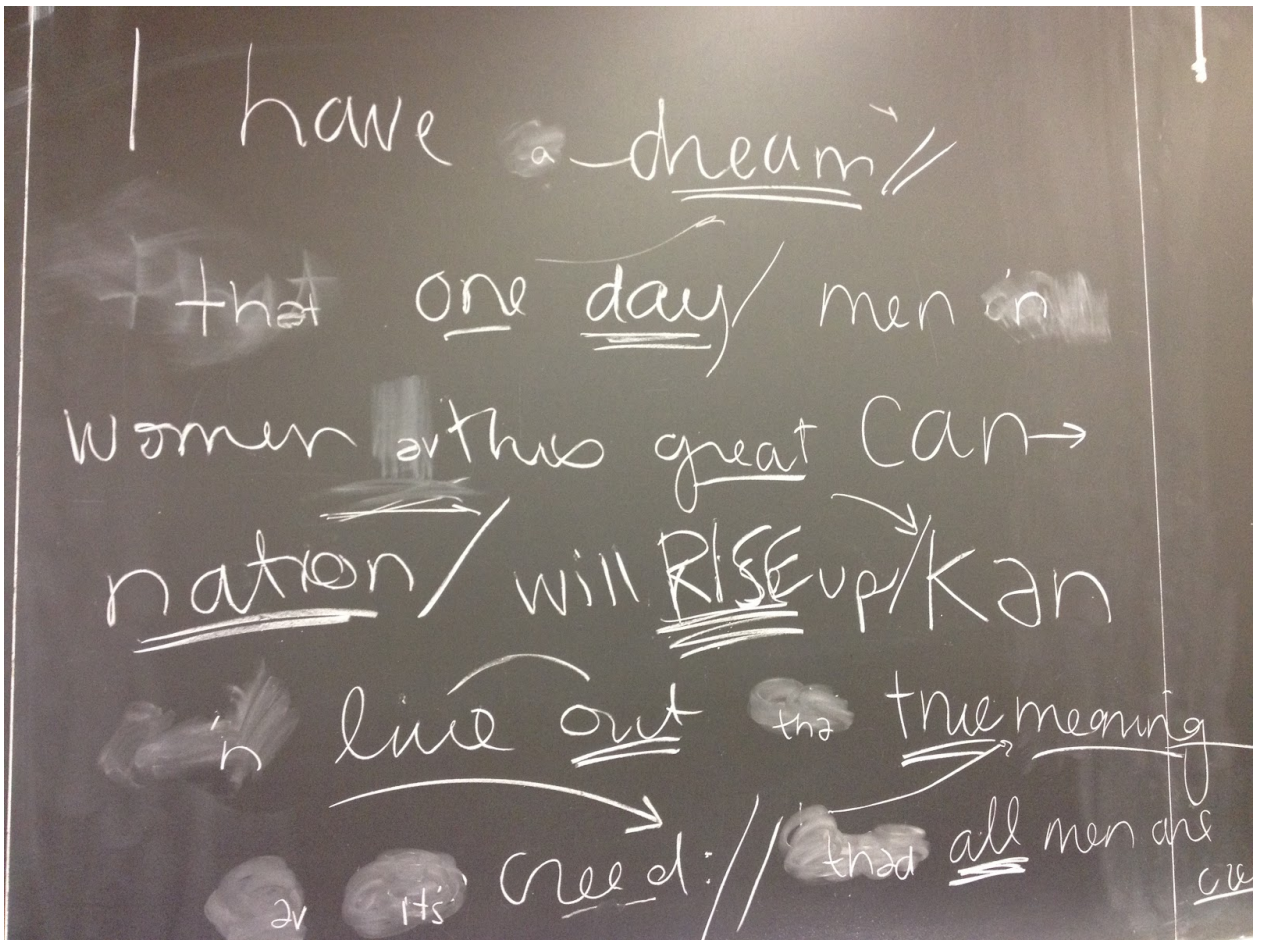 I have a dream //
that one day / men 'n
women əv this great Can →
nation / will RISE up / Kən
'n live out thə true meaning
əv its creed: // thəd all men are
cre